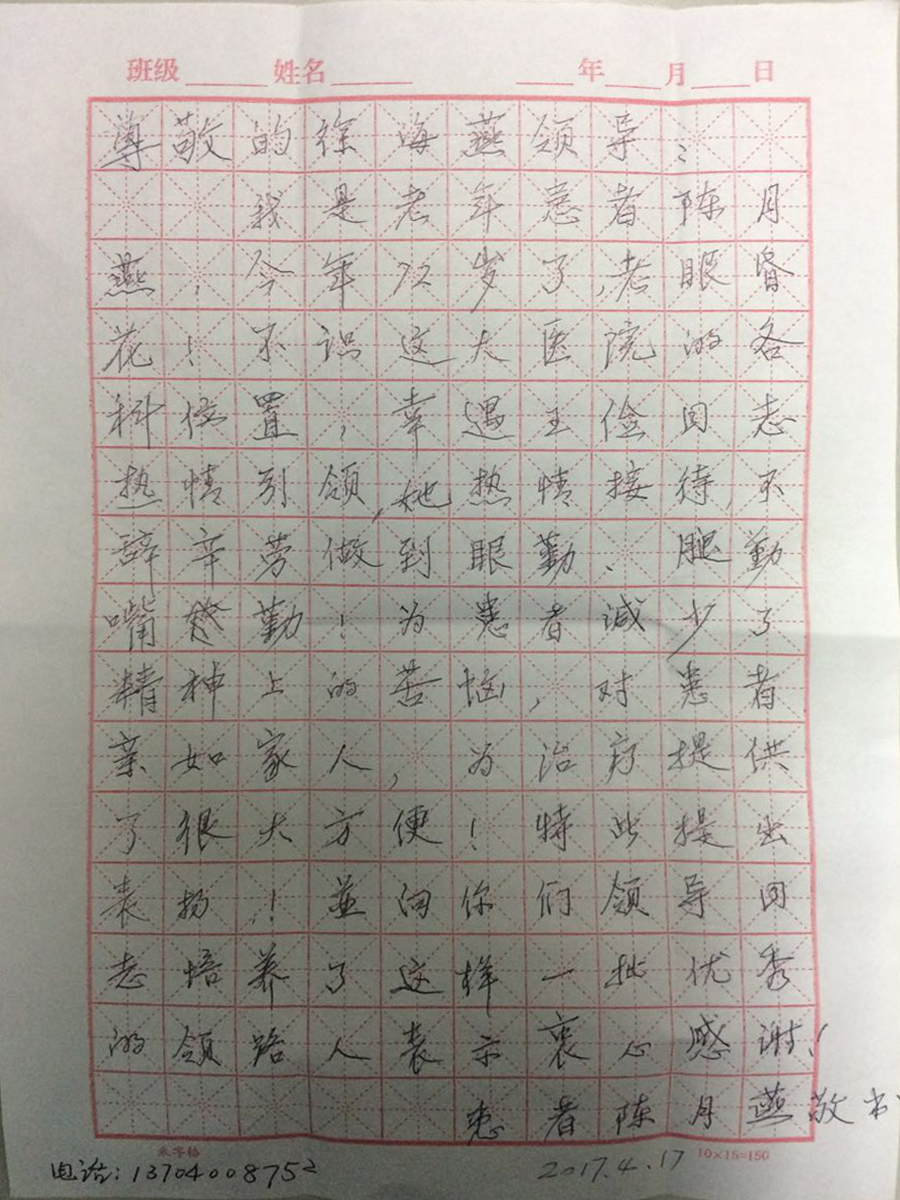 班级 姓名 年 月 日
尊敬的徐海燕领导：
我是老年患者陈月
燕，今年72岁了，老眼昏
花！不识这大医院的各
科位置，幸遇王俭同志
热情引领，她热情接待，不
辞辛劳做到眼勤、腿勤
嘴勤！为患者减少了
精神上的苦恼，对患者
亲如家人，为治疗提供
了很大方便！特此提出
表扬！并向你们领导同
志培养了这样一批优秀
的领路人表示衷心感谢！
患者陈月燕敬书
米字格 10×15=150
电话：13704008752 2017.4.17